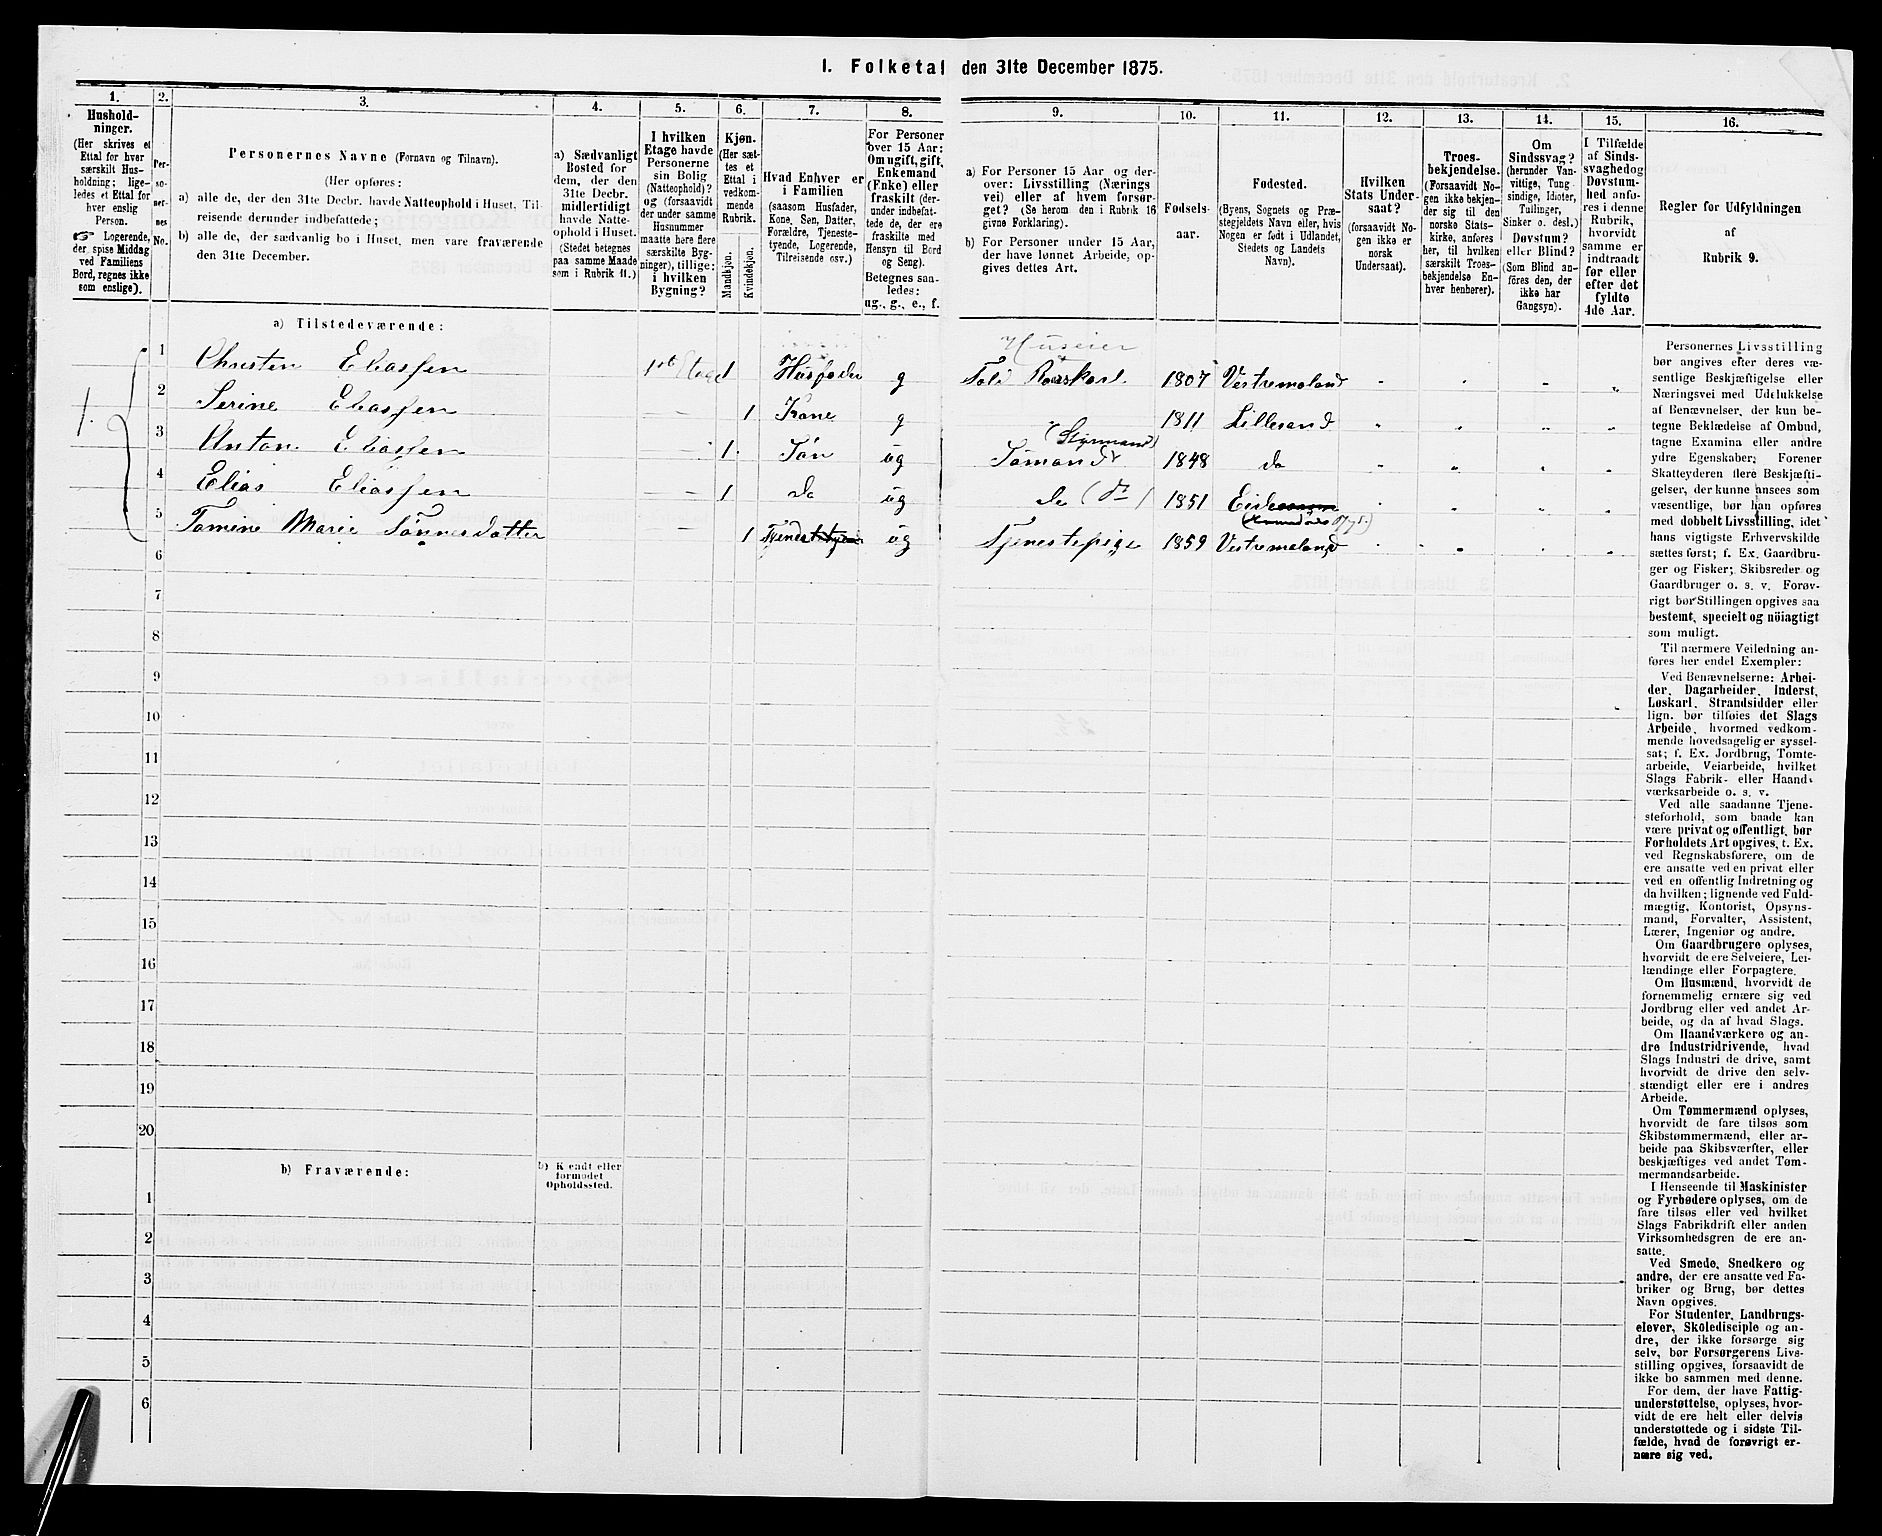 1. Folketal den 31te December 1875.
1. 2. 3. 4. 5. 6. 7. 8. 9. 10. 11. 12. 13. 14. 15. 16.
Hushold-
ninger.
(Her skrives et
Ettal for hver
særskilt Hus-
holdning; lige-
ledes et Ettal for
hver enslig
Person.
☞ Logerende,
der spise Middag
ved Familiens
Bord, regnes ikke
som enslige).
Per-
so-
ner-
nes
No.
Personernes Navne (Fornavn og Tilnavn).
(Her opføres:
a) alle de, der den 31te Decbr. havde Natteophold i Huset, Til-
reisende derunder indbefattede;
b) alle de, der sædvanlig bo i Huset, men vare fraværende
den 31te December.
a) Sædvanligt
Bosted for
dem, der den
31te Decbr.
midlertidigt
havde Natte-
ophold i Huset.
(Stedet betegnes
paa samme Maade
som i Rubrik 11.)
I hvilken
Etage havde
Personerne
sin Bolig
(Natteophold)?
og (forsaavidt
der under samme
Husnummer
maatte høre flere
særskilte Byg-
ninger), tillige:
i hvilken
Bygning?
Kjøn.
(Her sæt-
tes et
Ettal i
vedkom-
mende
Rubrik.
Mandkjøn.
Kvindekjøn.
Hvad Enhver er
i Familien
(saasom Husfader,
Kone, Søn, Datter,
Forældre, Tjeneste-
tyende, Logerende,
Tilreisende osv.)
For Personer
over 15 Aar:
Om ugift, gift,
Enkemand
(Enke) eller
fraskilt (der-
under indbefat-
tede de, der ere
fraskilte med
Hensyn til Bord
og Seng).
Betegnes saa-
ledes:
ug., g., e., f.
a) For Personer 15 Aar og der-
over: Livsstilling (Nærings
vei) eller af hvem forsør-
get? (Se herom den i Rubrik 16
givne Forklaring).
b) For Personer under 15 Aar,
der have lønnet Arbeide, op-
gives dettes Art.
Fødsels-
aar.
Fødested.
(Byens, Sognets og Præ-
stegjeldets Navn eller, hvis
Nogen er født i Udlandet,
Stedets og Landets
Navn).
Hvilken
Stats Under-
saat?
(forsaavidt No-
gen ikke er
norsk
Undersaat).
Troes-
bekjendelse.
(Forsaavidt No-
gen ikke bekjen-
der sig til den
norske Stats-
kirke, anføres
her, til hvilken
særskilt Troes-
bekjendelse En-
hver henhører).
Om
Sindssvag?
(herunder Van-
vittige, Tung
sindige, Idioter,
Tullinger,
Sinker o. desl.)
Døvstum?
eller Blind?
(Som Blind an-
føres den, der
ikke har
Gangsyn).
I Tilfælde
af Sinds-
svaghed og
Døvstum-
hed anfø-
res i denne
Rubrik,
hvorvidt
samme er
indtraadt
før eller
efter det
fyldte
4de Aar.
Regler for Udfyldningen
af
Rubrik 9.
a) Tilstedeværende:
Huseier
1. 1 Christen Eliassen 1ste Etage 1 Husfader g Told Roerskarl 1807 Vestremoland
2 Serine Eliassen 1 Kone g 1811 Lillesand
3 Anton Eliassen 1 Søn ug Sømand (Styrmand) 1848 do
4 Elias Eliassen 1 do ug do (do) 1851 Eide
5 Tomine Marie Tønnesdatter 1 Tjenestetyende ug Tjenestepige 1859 Vestremoland
6
7
8
9
10
11
12
13
14
15
16
17
18
19
20
b) Fraværende:
b) Kjendt eller
formodet
Opholdssted.
1
2
3
4
5
6
Personernes Livsstilling
bør angives efter deres væ-
sentlige Beskjæftigelse eller
Næringsvei med Udelukkelse
af Benævnelser, der kun be-
tegne Beklædelse af Ombud,
tagne Examina eller andre
ydre Egenskaber; Forener
Skatteyderen flere Beskjæfti-
gelser, der kunne ansees som
væsentlige, bør han opføres
med dobbelt Livsstilling, idet
hans vigtigste Erhvervskilde
sættes først; f. Ex. Gaardbru-
ger og Fisker; Skibsreder og
Gaardbruger o. s. v. Forøv-
rigt bør Stillingen opgives saa
bestemt, specielt og nöiagtigt
som muligt.
Til nærmere Veiledning an-
føres her endel Exempler:
Ved Benævnelserne: Arbei-
der, Dagarbeider, Inderst,
Løskarl, Strandsidder eller
lign. bør tilføies det Slags
Arbeide, hvormed vedkom-
mende hovedsagelig er syssel-
sat; f. Ex. Jordbrug, Tomte-
arbeide, Veiarbeide, hvilket
Slags Fabrik- eller Haand-
værksarbeide o. s. v.
Ved alle saadanne Tjene-
steforhold, som baade kan
være privat og offentligt, bør
Forholdets Art opgives, t. Ex.
ved Regnskabsførere, om de
ere ansatte ved en privat eller
ved en offentlig Indretning og
da hvilken; lignende ved Fuld-
mægtig, Kontorist, Opsyns-
mand, Forvalter, Assistent,
Lærer, Ingeniør og andre.
Om Gaardbrugere oplyses,
hvorvidt de ere Selveiere, Lei-
lændinge eller Forpagtere.
Om Husmænd, hvorvidt de
fornemmelig ernære sig ved
Jordbrug eller ved andet Ar-
beide, og da af hvad Slags.
Om Haandværkere og an-
dre Industridrivende, hvad
Slags Industri de drive, samt
hvorvidt de drive den selv-
stændigt eller ere i andres
Arbeide.
Om Tømmermænd oplyses,
hvorvidt de fare tilsøs som
Skibstømmermænd, eller ar-
beide paa Skibsværfter, eller
beskjæftiges ved andet Tøm-
mermandsarbeide.
I Henseende til Maskinister
og Fyrbødere oplyses, om de
fare tilsøs eller ved hvilket
Slags Fabrikdrift eller anden
Virksomhedsgren de ere an-
satte.
Ved Smede, Snedkere og
andre, der ere ansatte ved Fa-
briker og Brug, bør dettes
Navn opgives.
For Studenter, Landbrugs-
elever, Skoledisciple og an-
dre, der ikke forsørge sig
selv, bør Forsørgerens Livs-
stilling opgives, forsaavidt de
ikke bo sammen med denne.
For dem, der have Fattig-
understøttelse, oplyses, hvor-
vidt de ere helt eller delvis
understøttede og i sidste Til-
fælde, hvad de forøvrigt er-
nære sig ved.